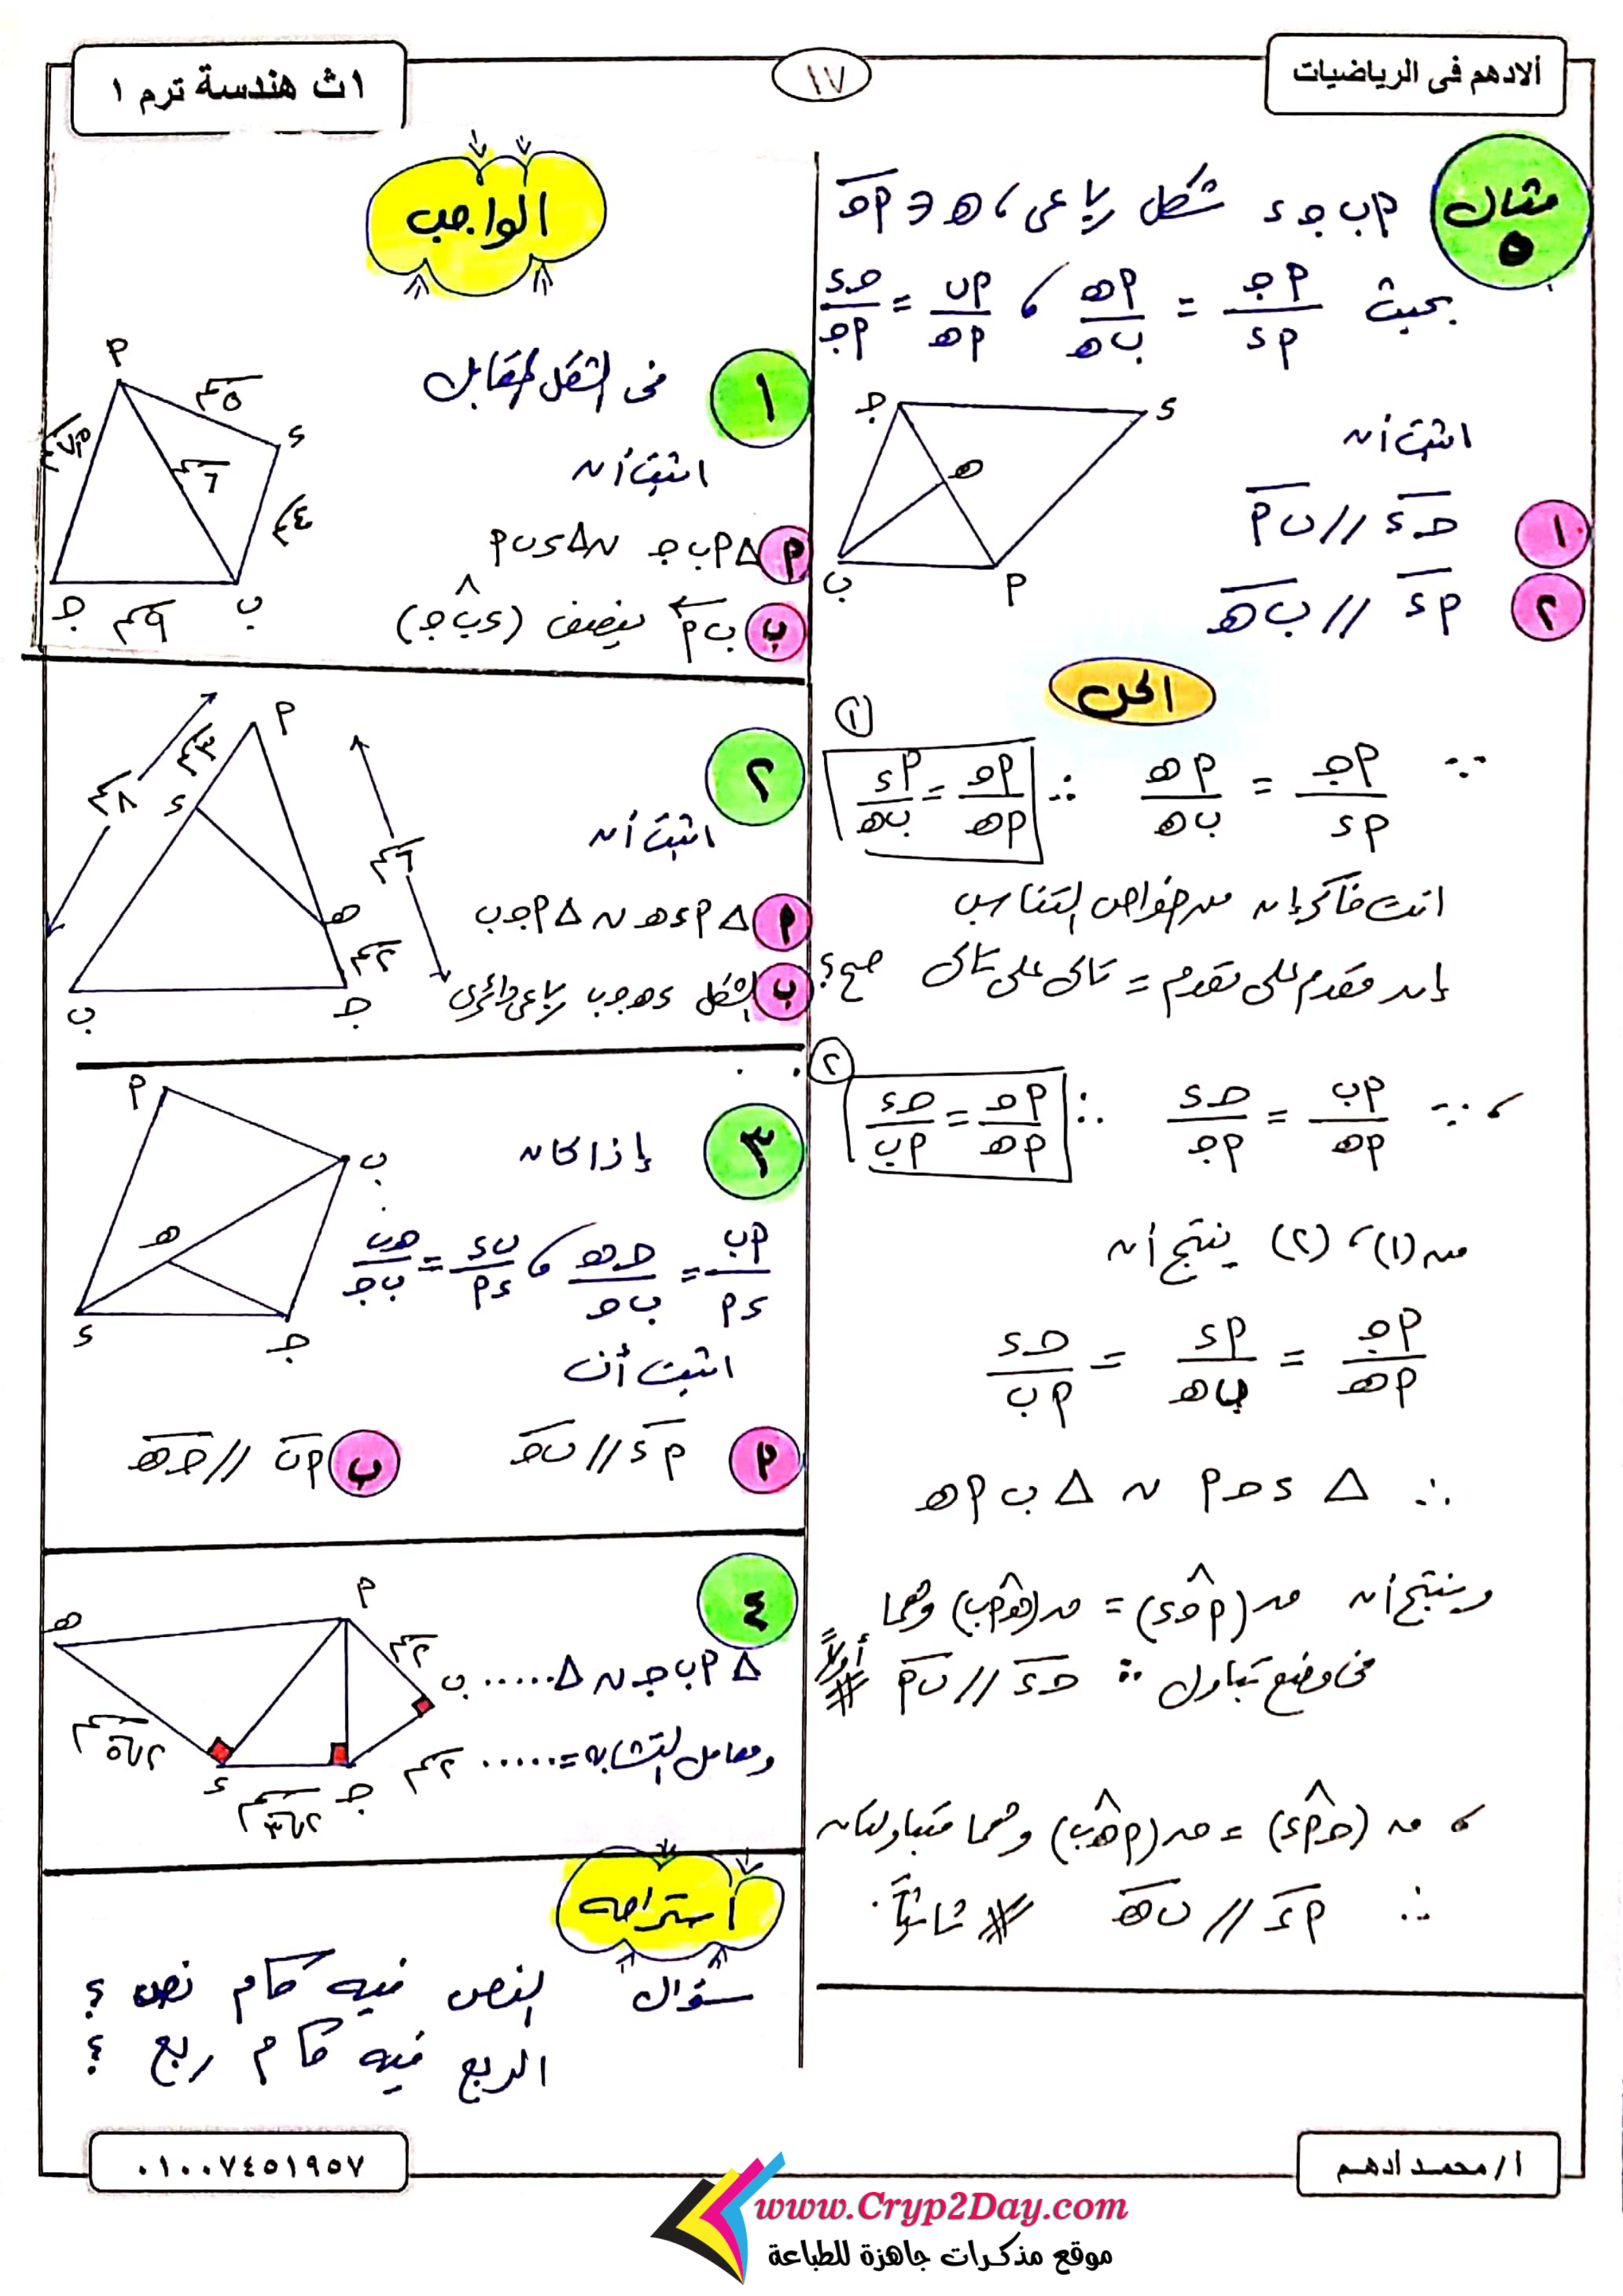 ألادهم فى الرياضيات
١٧
١ث هندسة ترم ١
مثال ٥
أ ب جـ د شكل رباعى ، هـ ∈ أجـ
بحيث أجـ/أد = أهـ/ب هـ ، أب/أهـ = جـد/أجـ
اثبت أن
١ جـد // ب أ
٢ أد // ب هـ
جـ د هـ ب أ
الحل
∵ أجـ/أد = أهـ/ب هـ ∴ أجـ/أهـ = أد/ب هـ ١
انت فاكر إن من خواص التناسب
إن مقدم على مقدم = تالى على تالى صح ؟
، ∵ أب/أهـ = جـد/أجـ ∴ أجـ/أهـ = جـد/أب ٢
من (١) ، (٢) ينتج أن
أجـ/أهـ = أد/ب هـ = جـد/أب
∴ Δ د جـ أ ~ Δ ب أ هـ
وينتج أن ق(أ جـ د) = ق(هـ أ ب) وهما
فى وضع تبادل ∴ جـد // ب أ # أولاً
، ق(جـ أ د) = ق(أ هـ ب) وهما متبادلتان
∴ أد // ب هـ # ثانياً
الواجب
١ فى الشكل المقابل
اثبت أن
أ Δ أ ب جـ ~ Δ د ب أ
ب ب أ ينصف (د ب جـ)
أ ٥سم د ٤سم ٦سم ب ٩سم جـ
٢
اثبت أن
أ Δ أ د هـ ~ Δ أ جـ ب
ب الشكل د هـ جـ ب رباعى دائرى
أ ٣سم د ٨سم ٦سم هـ ٢سم جـ ب
٣ إذا كان
أب/دأ = جـهـ/ب جـ ، ب د/دأ = هـب/ب جـ
اثبت أن
أ أد // ب جـ ب أب // جـهـ
أ ب هـ د جـ
٤
Δ أ ب جـ ~ Δ ......
ومعامل التشابه = ......
هـ أ ٢سم ب ٢سم جـ ٢√٣سم د ٢√٥سم
استراحه
سؤال النص فيه كام نص ؟
الربع فيه كام ربع ؟
أ/محمد أدهم
٠١٠٠٧٤٥١٩٥٧
www.Cryp2Day.com
موقع مذكرات جاهزة للطباعة